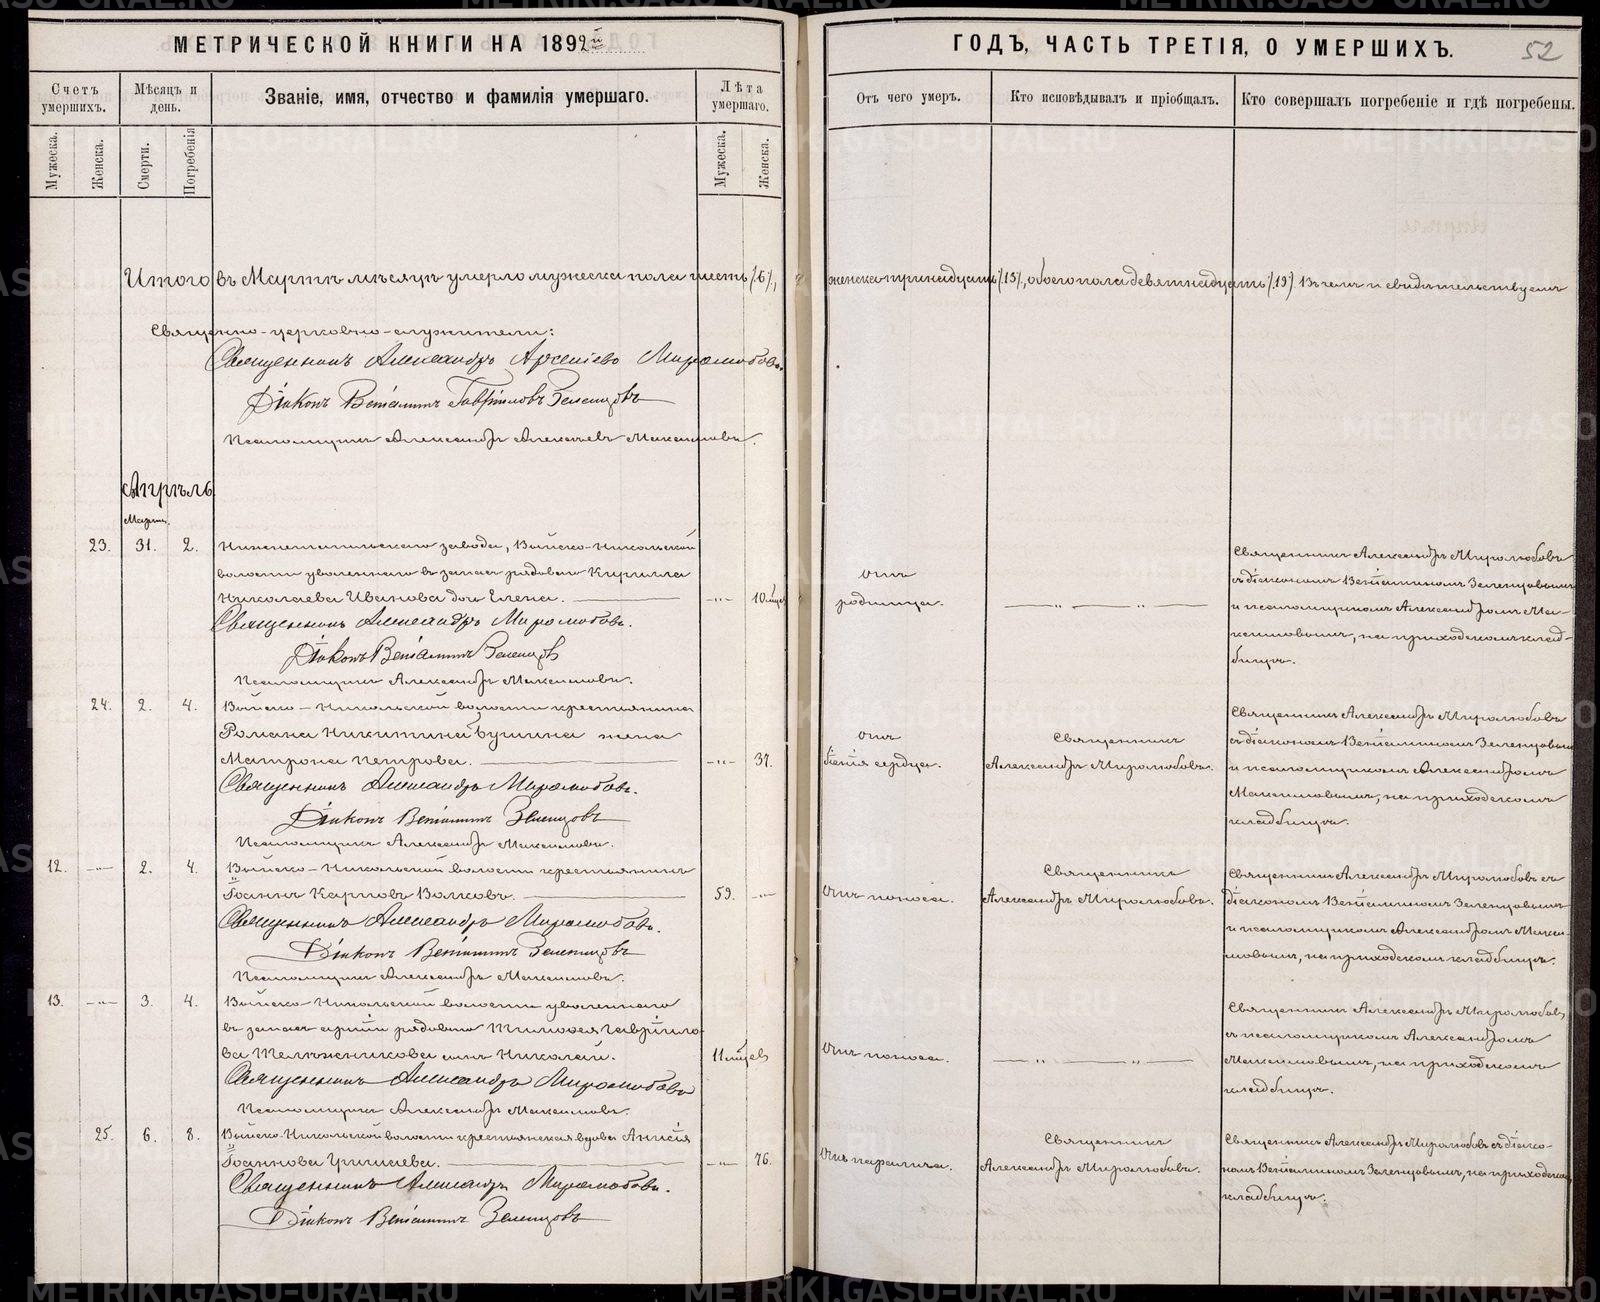 МЕТРИЧЕСКОЙ КНИГИ НА 1892й
ГОДЪ, ЧАСТЬ ТРЕТІЯ, О УМЕРШИХЪ.
52
Счетъ умершихъ.
Мѣсяцъ и день.
Званіе, имя, отчество и фамилія умершаго.
Лѣта умершаго.
Отъ чего умеръ.
Кто исповѣдывалъ и пріобщалъ.
Кто совершалъ погребеніе и гдѣ погребены.
Мужеска.
Женска.
Смерти.
Погребенія
Мужеска.
Женска.
Итого въ Мартѣ мѣсяцѣ умерло мужеска пола шесть /6/, женска тринадцать /13/, обоего пола девятнадцать /19/. Въ чемъ и свидѣтельствуемъ
Священно-церковно-служители:
Священникъ Александръ Арсеніевъ Миролюбовъ.
Діаконъ Веніаминъ Гавріиловъ Зеленцовъ
Псаломщикъ Александръ Алексѣевъ Максимовъ.
Апрѣль
Марта.
23. 31. 2. Нижнетагильскаго завода, Выйско-Никольской
волости уволеннаго въ запасъ рядоваго Кирилла
Николаева Иванова дочь Елена. 10 мцев
Священникъ Александръ Миролюбовъ.
Діаконъ Веніаминъ Зеленцовъ
Псаломщикъ Александръ Максимовъ.
Отъ
родимца.
Священникъ Александръ Миролюбовъ
съ діакономъ Веніаминомъ Зеленцовымъ
и псаломщикомъ Александромъ Ма-
ксимовымъ, на приходскомъ клад-
бищѣ.
24. 2. 4. Выйско-Никольской волости крестьянина
Романа Никитина жена
Матрона Петрова. 37.
Священникъ Александръ Миролюбовъ.
Діаконъ Веніаминъ Зеленцовъ
Псаломщикъ Александръ Максимовъ.
Отъ
біенія сердца.
Священникъ
Александръ Миролюбовъ.
Священникъ Александръ Миролюбовъ
съ діакономъ Веніаминомъ Зеленцовымъ
и псаломщикомъ Александромъ
Максимовымъ, на приходскомъ
кладбищѣ.
12. 2. 4. Выйско-Никольской волости крестьянинъ
Іоаннъ Карповъ Волковъ. 59.
Священникъ Александръ Миролюбовъ.
Діаконъ Веніаминъ Зеленцовъ
Псаломщикъ Александръ Максимовъ.
Отъ поноса.
Священникъ
Александръ Миролюбовъ.
Священникъ Александръ Миролюбовъ съ
діакономъ Веніаминомъ Зеленцовымъ
и псаломщикомъ Александромъ Макси-
мовымъ, на приходскомъ кладбищѣ.
13. 3. 4. Выйско-Никольской волости уволеннаго
въ запасъ арміи рядоваго Тимофея Гавріило-
ва сынъ Николай. 11 мцев
Священникъ Александръ Миролюбовъ
Псаломщикъ Александръ Максимовъ.
Отъ поноса.
Священникъ Александръ Миролюбовъ,
съ псаломщикомъ Александромъ
Максимовымъ, на приходскомъ
кладбищѣ.
25. 6. 8. Выйско-Никольской волости крестьянская вдова Анисія
Іоаннова 76.
Священникъ Александръ Миролюбовъ.
Діаконъ Веніаминъ Зеленцовъ
Отъ паралича.
Священникъ
Александръ Миролюбовъ.
Священникъ Александръ Миролюбовъ съ діако-
номъ Веніаминомъ Зеленцовымъ, на приходскомъ
кладбищѣ.
METRIKI.GASO-URAL.RU